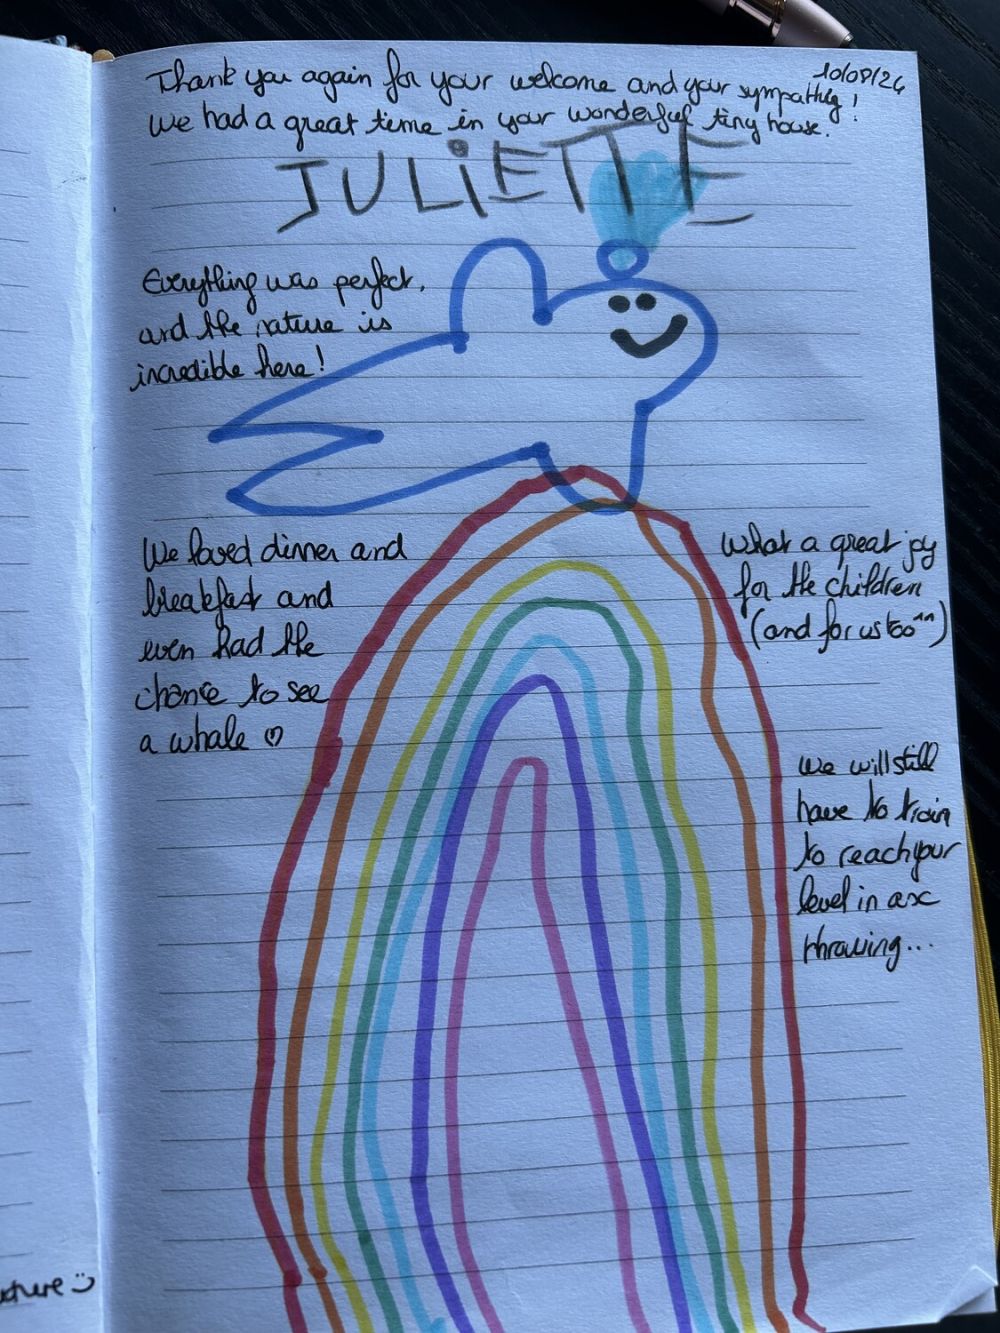 10/08/24
Thank you again for your welcome and your sympathy!
We had a great time in your wonderful tiny house.
JULiETTE
Everything was perfect,
and the nature is
incredible here!
We loved dinner and
breakfast and
even had the
chance to see
a whale ♡
What a great joy
for the children
(and for us too^^)
We will still
have to train
to reach your
level in axe
throwing...